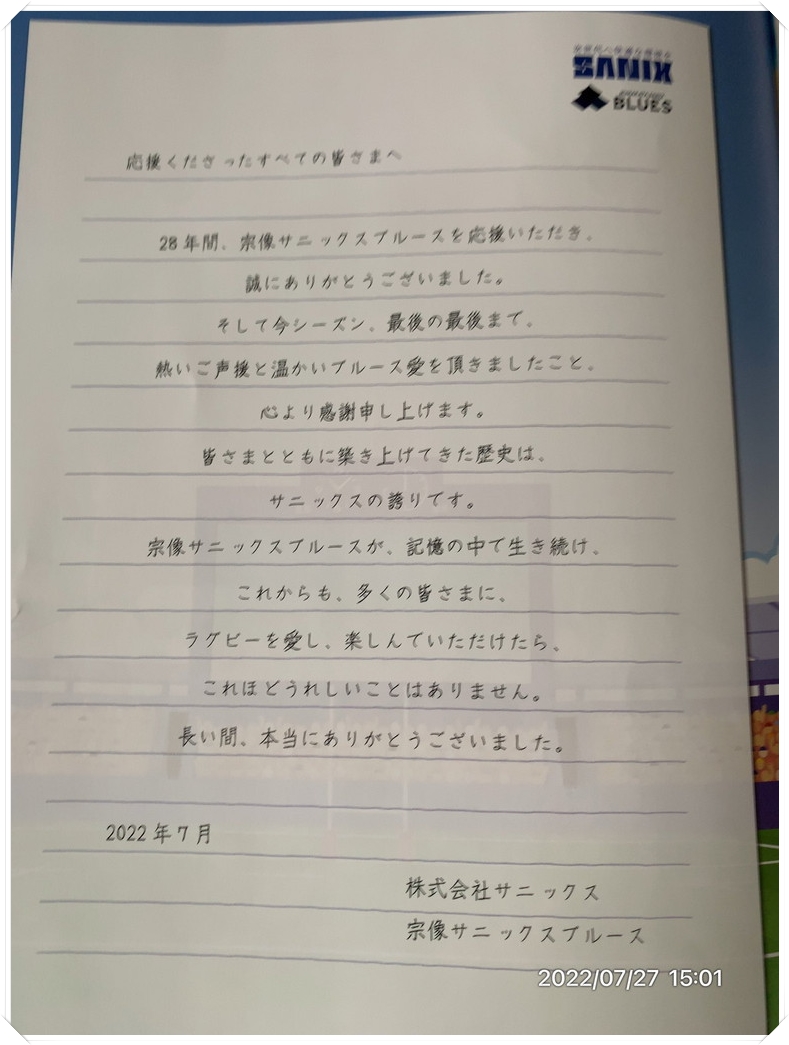 SANIX
BLUES
応援くださったすべての皆さまへ
28年間、宗像サニックスブルースを応援いただき、
誠にありがとうございました。
そして今シーズン、最後の最後まで、
熱いご声援と温かいブルース愛を頂きましたこと、
心より感謝申し上げます。
皆さまとともに築き上げてきた歴史は、
サニックスの誇りです。
宗像サニックスブルースが、記憶の中で生き続け、
これからも、多くの皆さまに、
ラグビーを愛し、楽しんでいただけたら、
これほどうれしいことはありません。
長い間、本当にありがとうございました。
2022年7月
株式会社サニックス
宗像サニックスブルース
2022/07/27 15:01